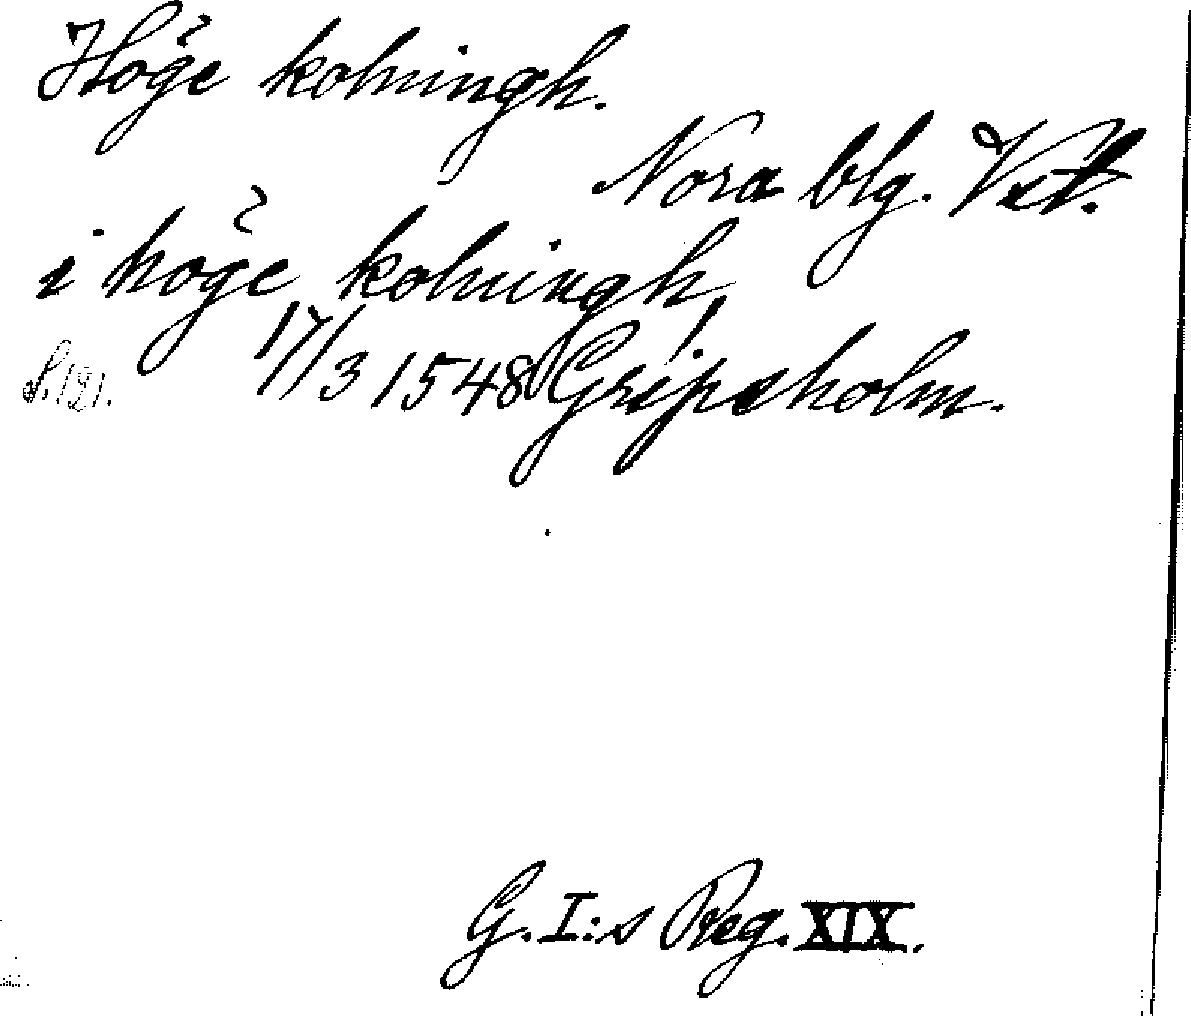 Höge kolningh.
Nora blg. Vstl.
i höge kolningh,
S. 121. 17/3 1548 Gripsholm.
G. I:s Reg. XIX.